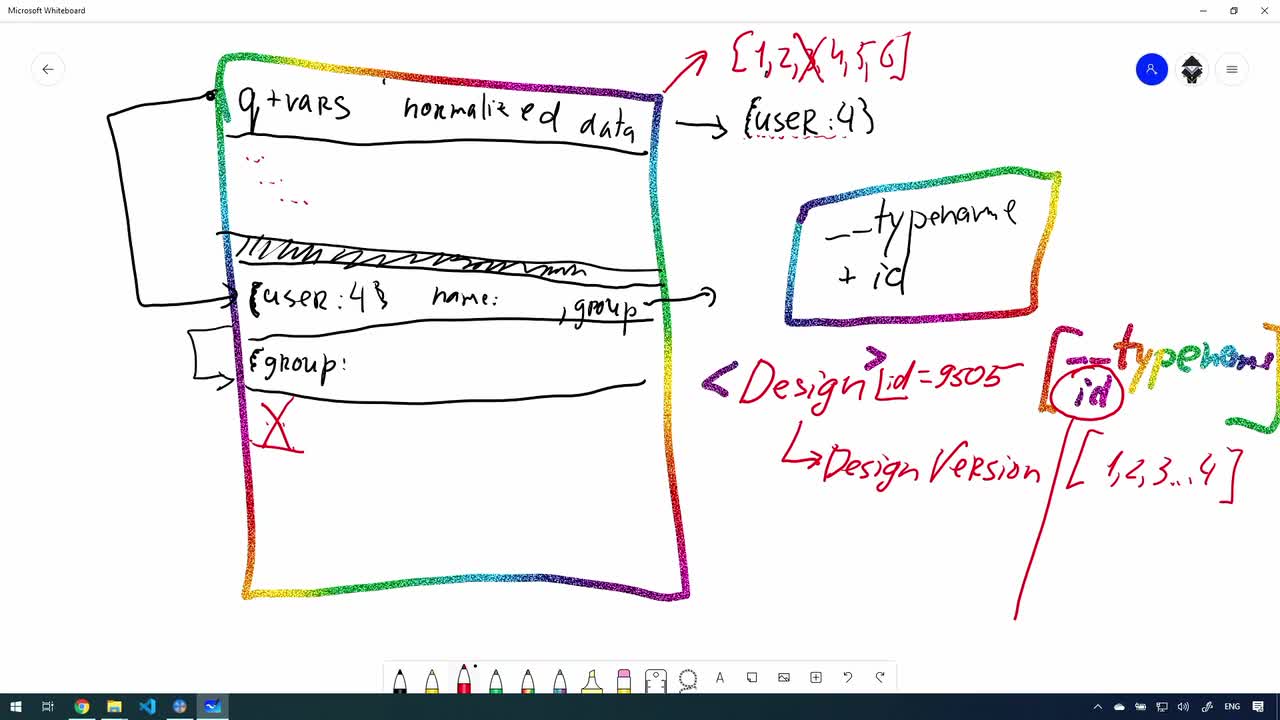 Microsoft Whiteboard
[1,2,3,4,5,6]
q+vars normalized data
{user:4}
__typename
+ id
{user:4} name: , group
{group:
<Design> id=9505
[__typename
id]
X
DesignVersion [1,2,3...4]
A
ENG